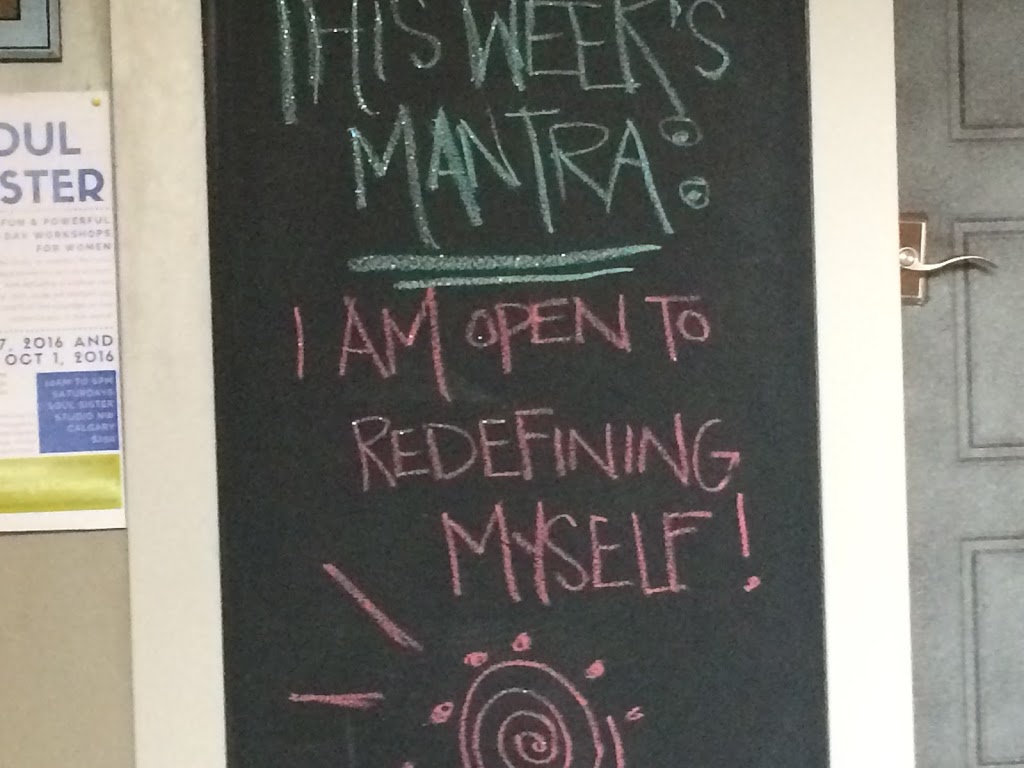 THIS WEEK'S
MANTRA:
I AM OPEN TO
REDEFINING
MYSELF!
OUL
STER
FUN & POWERFUL
DAY WORKSHOPS
FOR WOMEN
7, 2016 AND
OCT 1, 2016
10AM TO 5PM
SATURDAYS
SOUL SISTER
STUDIO NW
CALGARY